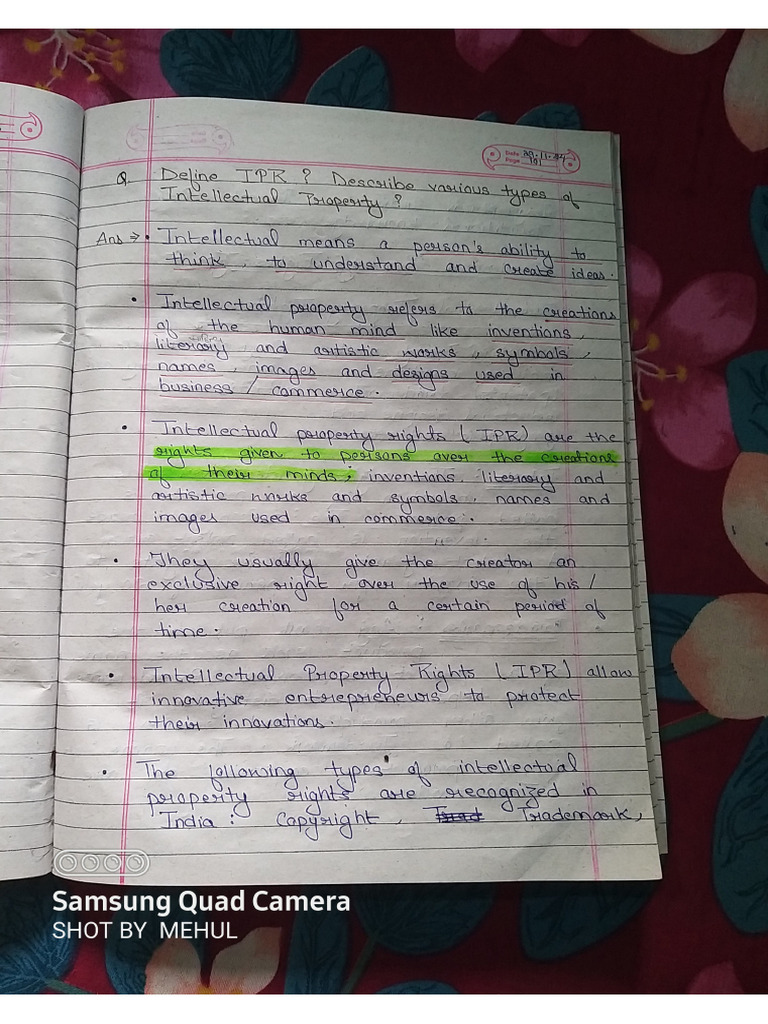 Date 29.11.24
Page 19
Q Define IPR ? Describe various types of
Intellectual Property ?
Ans ⇒ • Intellectual means a person's ability to
think, to understand and create ideas.
• Intellectual property refers to the creations
of the human mind like inventions,
literary and artistic works, symbols,
names, images and designs used in
business / commerce.
• Intellectual property rights (IPR) are the
rights given to persons over the creations
of their minds; inventions, literary and
artistic works and symbols, names and
images used in commerce.
• They usually give the creator an
exclusive right over the use of his/
her creation for a certain period of
time.
• Intellectual Property Rights (IPR) allow
innovative entrepreneurs to protect
their innovations.
• The following types of intellectual
property rights are recognized in
India: Copyright, Trademark,
Samsung Quad Camera
SHOT BY MEHUL